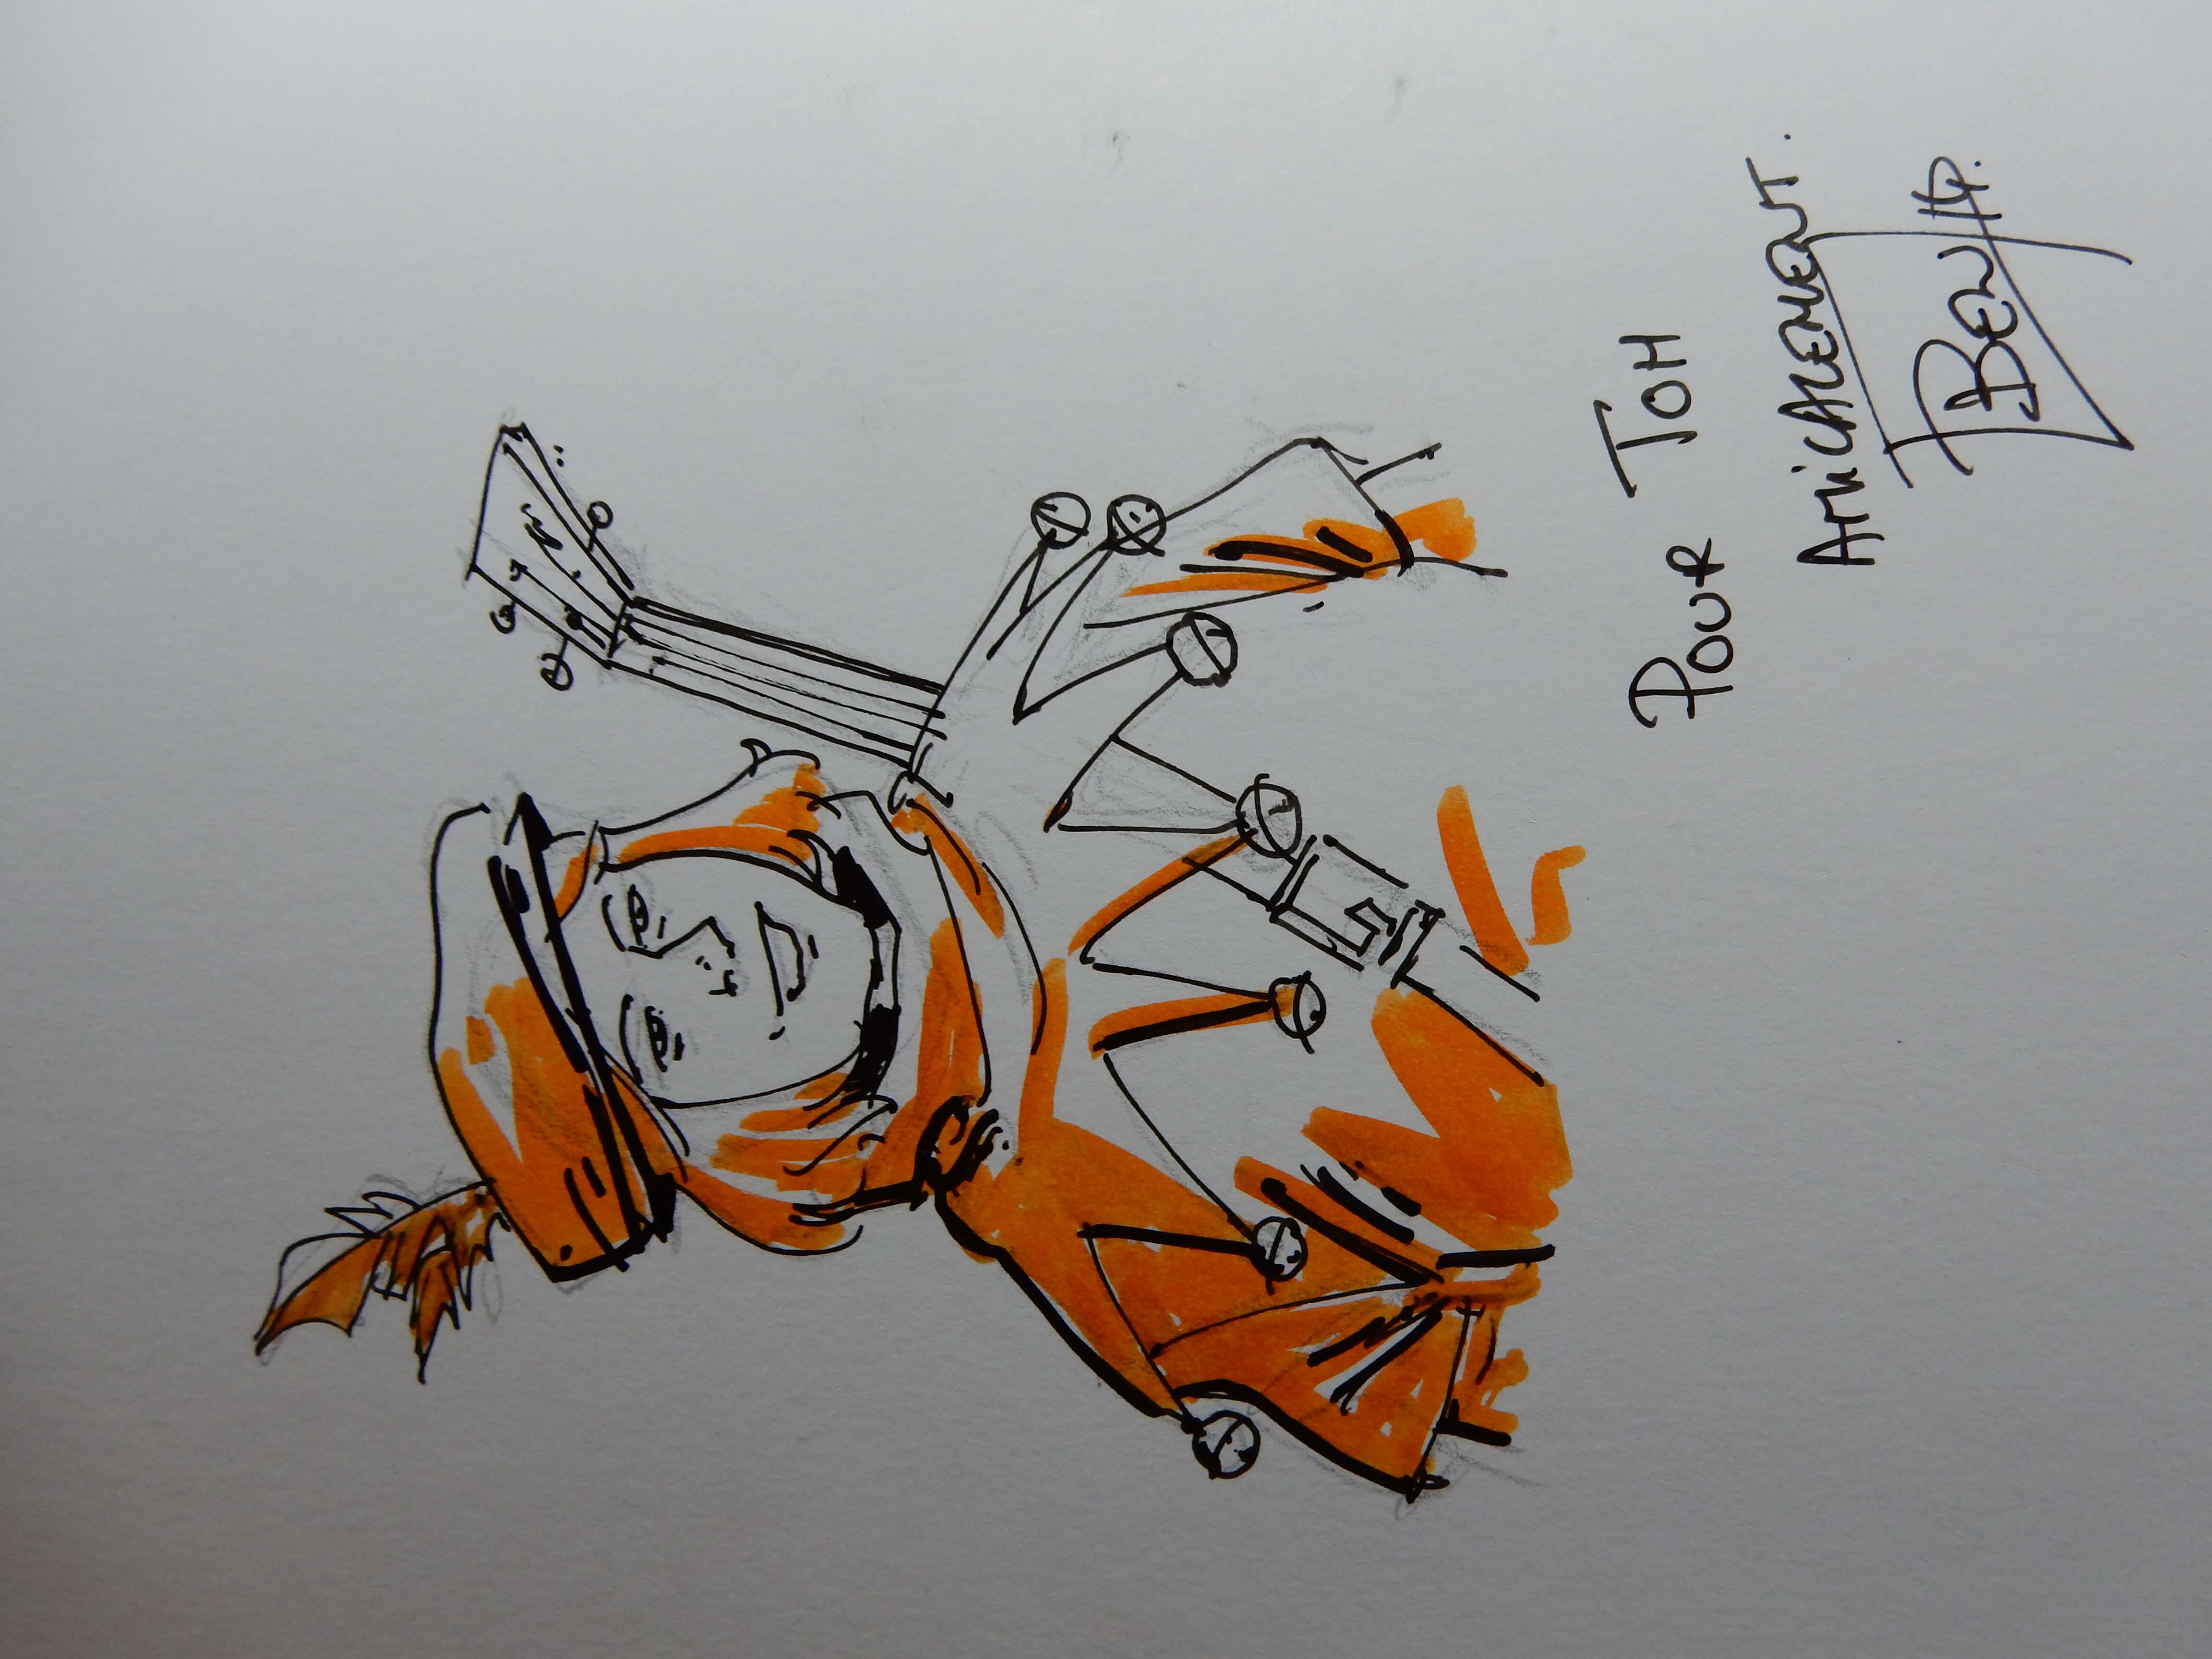 POUR TOM
AMiCALEMENT.
BEN 14.